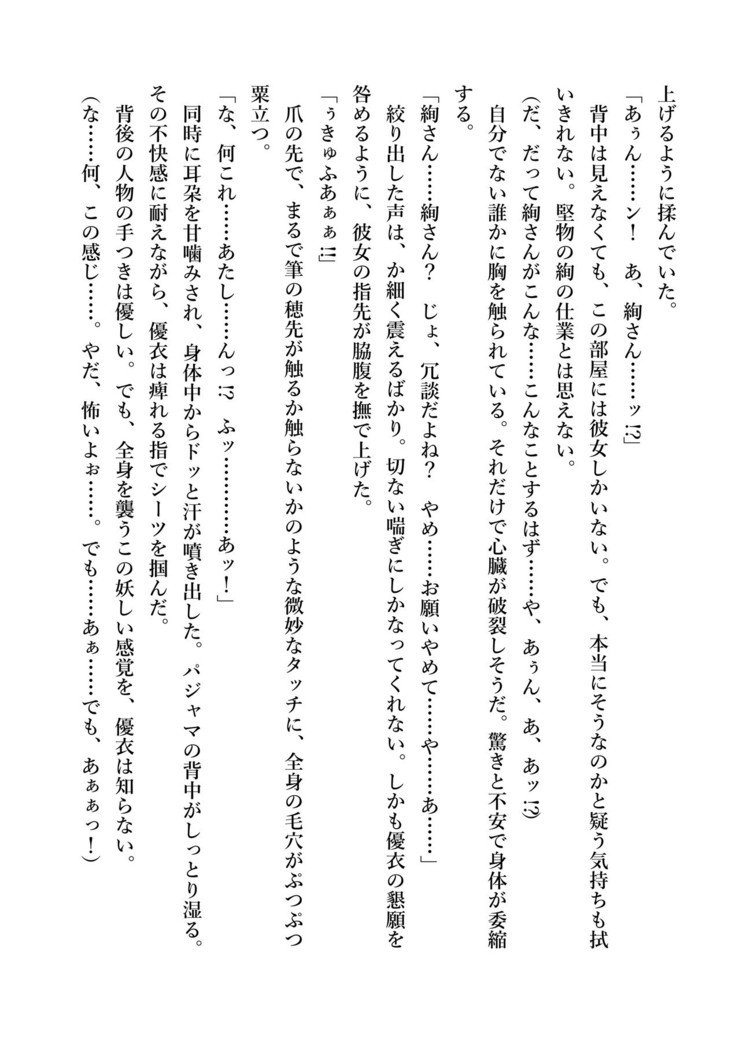 上げるように揉んでいた。
「あぅん……ン!　あ、絢さん……ッ!?」
　背中は見えなくても、この部屋には彼女しかいない。でも、本当にそうなのかと疑う気持ちも拭
いきれない。堅物の絢の仕業とは思えない。
(だ、だって絢さんがこんな……こんなことするはず……や、あぅん、あ、あッ!?)
　自分でない誰かに胸を触られている。それだけで心臓が破裂しそうだ。驚きと不安で身体が委縮
する。
「絢さん……絢さん?　じょ、冗談だよね?　やめ……お願いやめて……や……あ……」
　絞り出した声は、か細く震えるばかり。切ない喘ぎにしかなってくれない。しかも優衣の懇願を
咎めるように、彼女の指先が脇腹を撫で上げた。
「ぅきゅふあぁぁ!!」
　爪の先で、まるで筆の穂先が触るか触らないかのような微妙なタッチに、全身の毛穴がぷつぷつ
粟立つ。
「な、何これ……あたし……んっ!?　ふッ…………あッ!」
　同時に耳朶を甘噛みされ、身体中からドッと汗が噴き出した。パジャマの背中がしっとり湿る。
その不快感に耐えながら、優衣は痺れる指でシーツを掴んだ。
　背後の人物の手つきは優しい。でも、全身を襲うこの妖しい感覚を、優衣は知らない。
(な……何、この感じ……。やだ、怖いよぉ……。でも……あぁ……でも、あぁぁっ!)